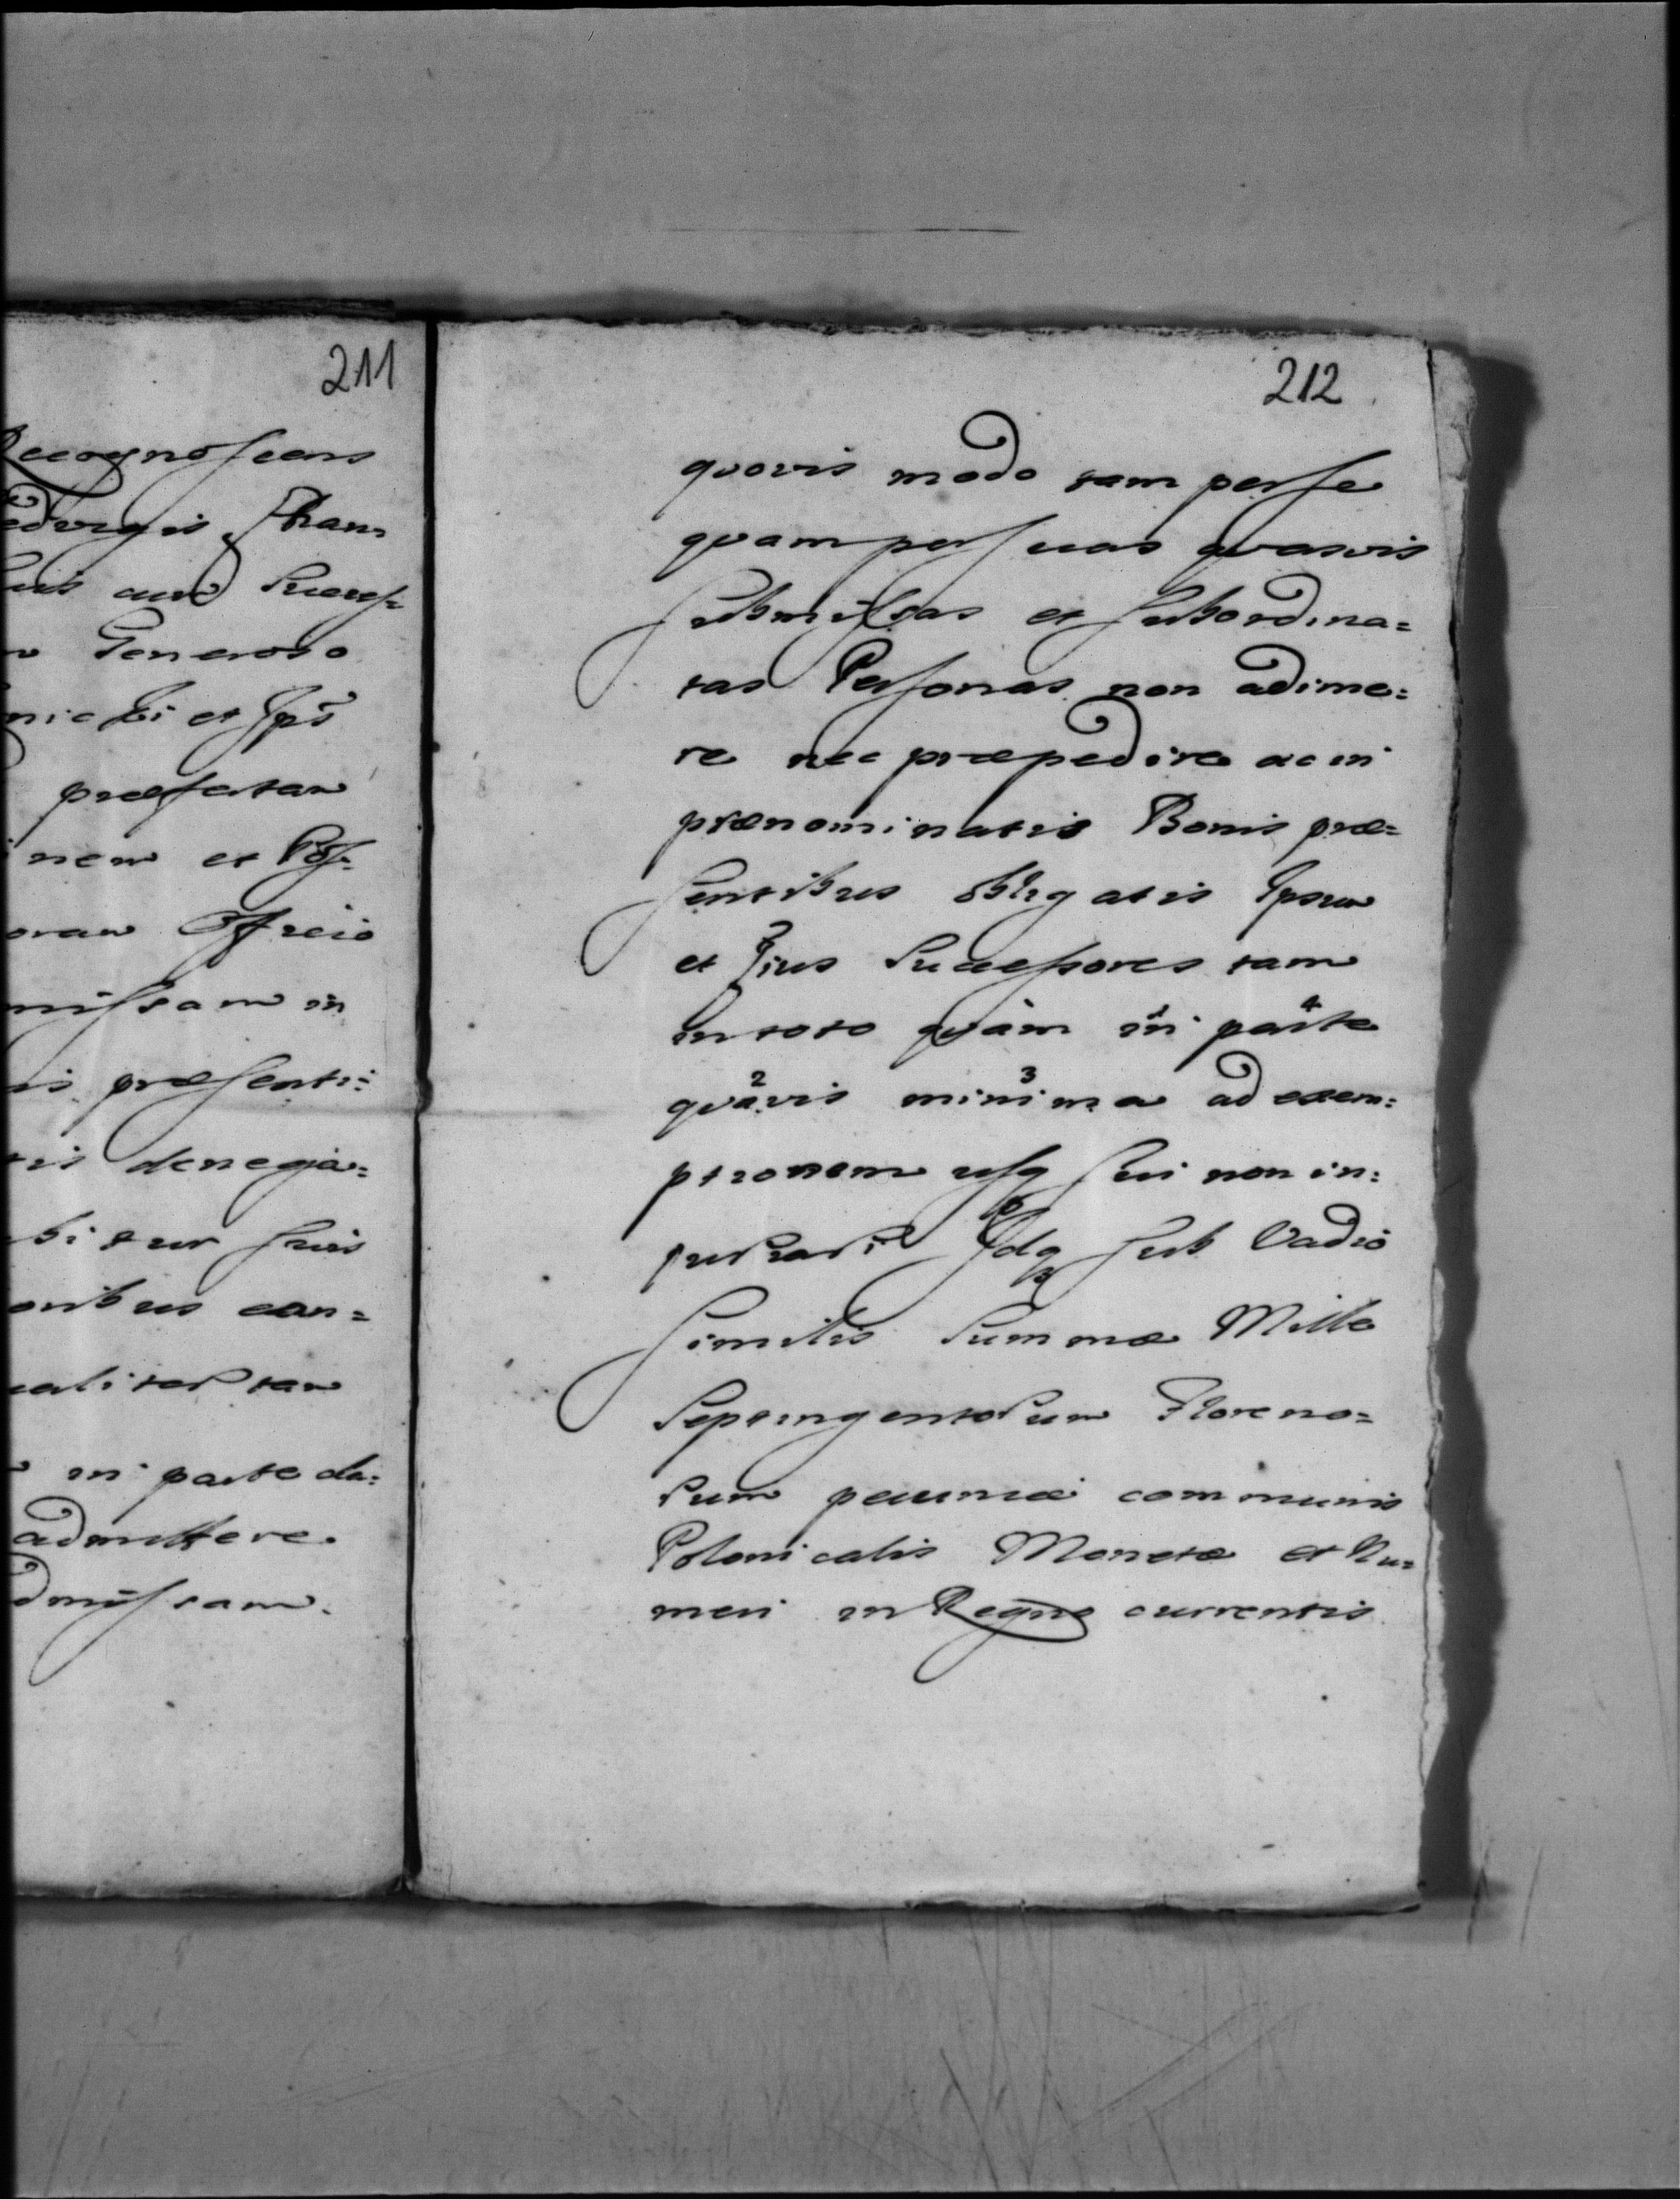 211
Recognoscens
edvigis Than
suis cum Success=
Generoso
et Ips
præfertam
nem et Pos=
oram Officio
missam in
is præsenti=
tis denega=
bitur suis
oribus eam=
ealiter tam
in parte da=
admittere.
dmissam.
212
quovis modo tam per se
quam per suas quasvis
submissas et subordina=
tas Personas non adime=
re nec præpedire ac in
prænominatis Bonis præ=
sentibus obligatis Ipsum
et Ejus Successores tam
in toto quàm in 1 parte 4
quavis 2 minima 3 ad exem=
ptionem usq sui non in=
turbare Idq sub Vadio
similis Summæ Mille
Septingentorum Floreno=
rum pecuniæ communis
Polonicalis Monetæ et Nu=
meri in Regno currentis